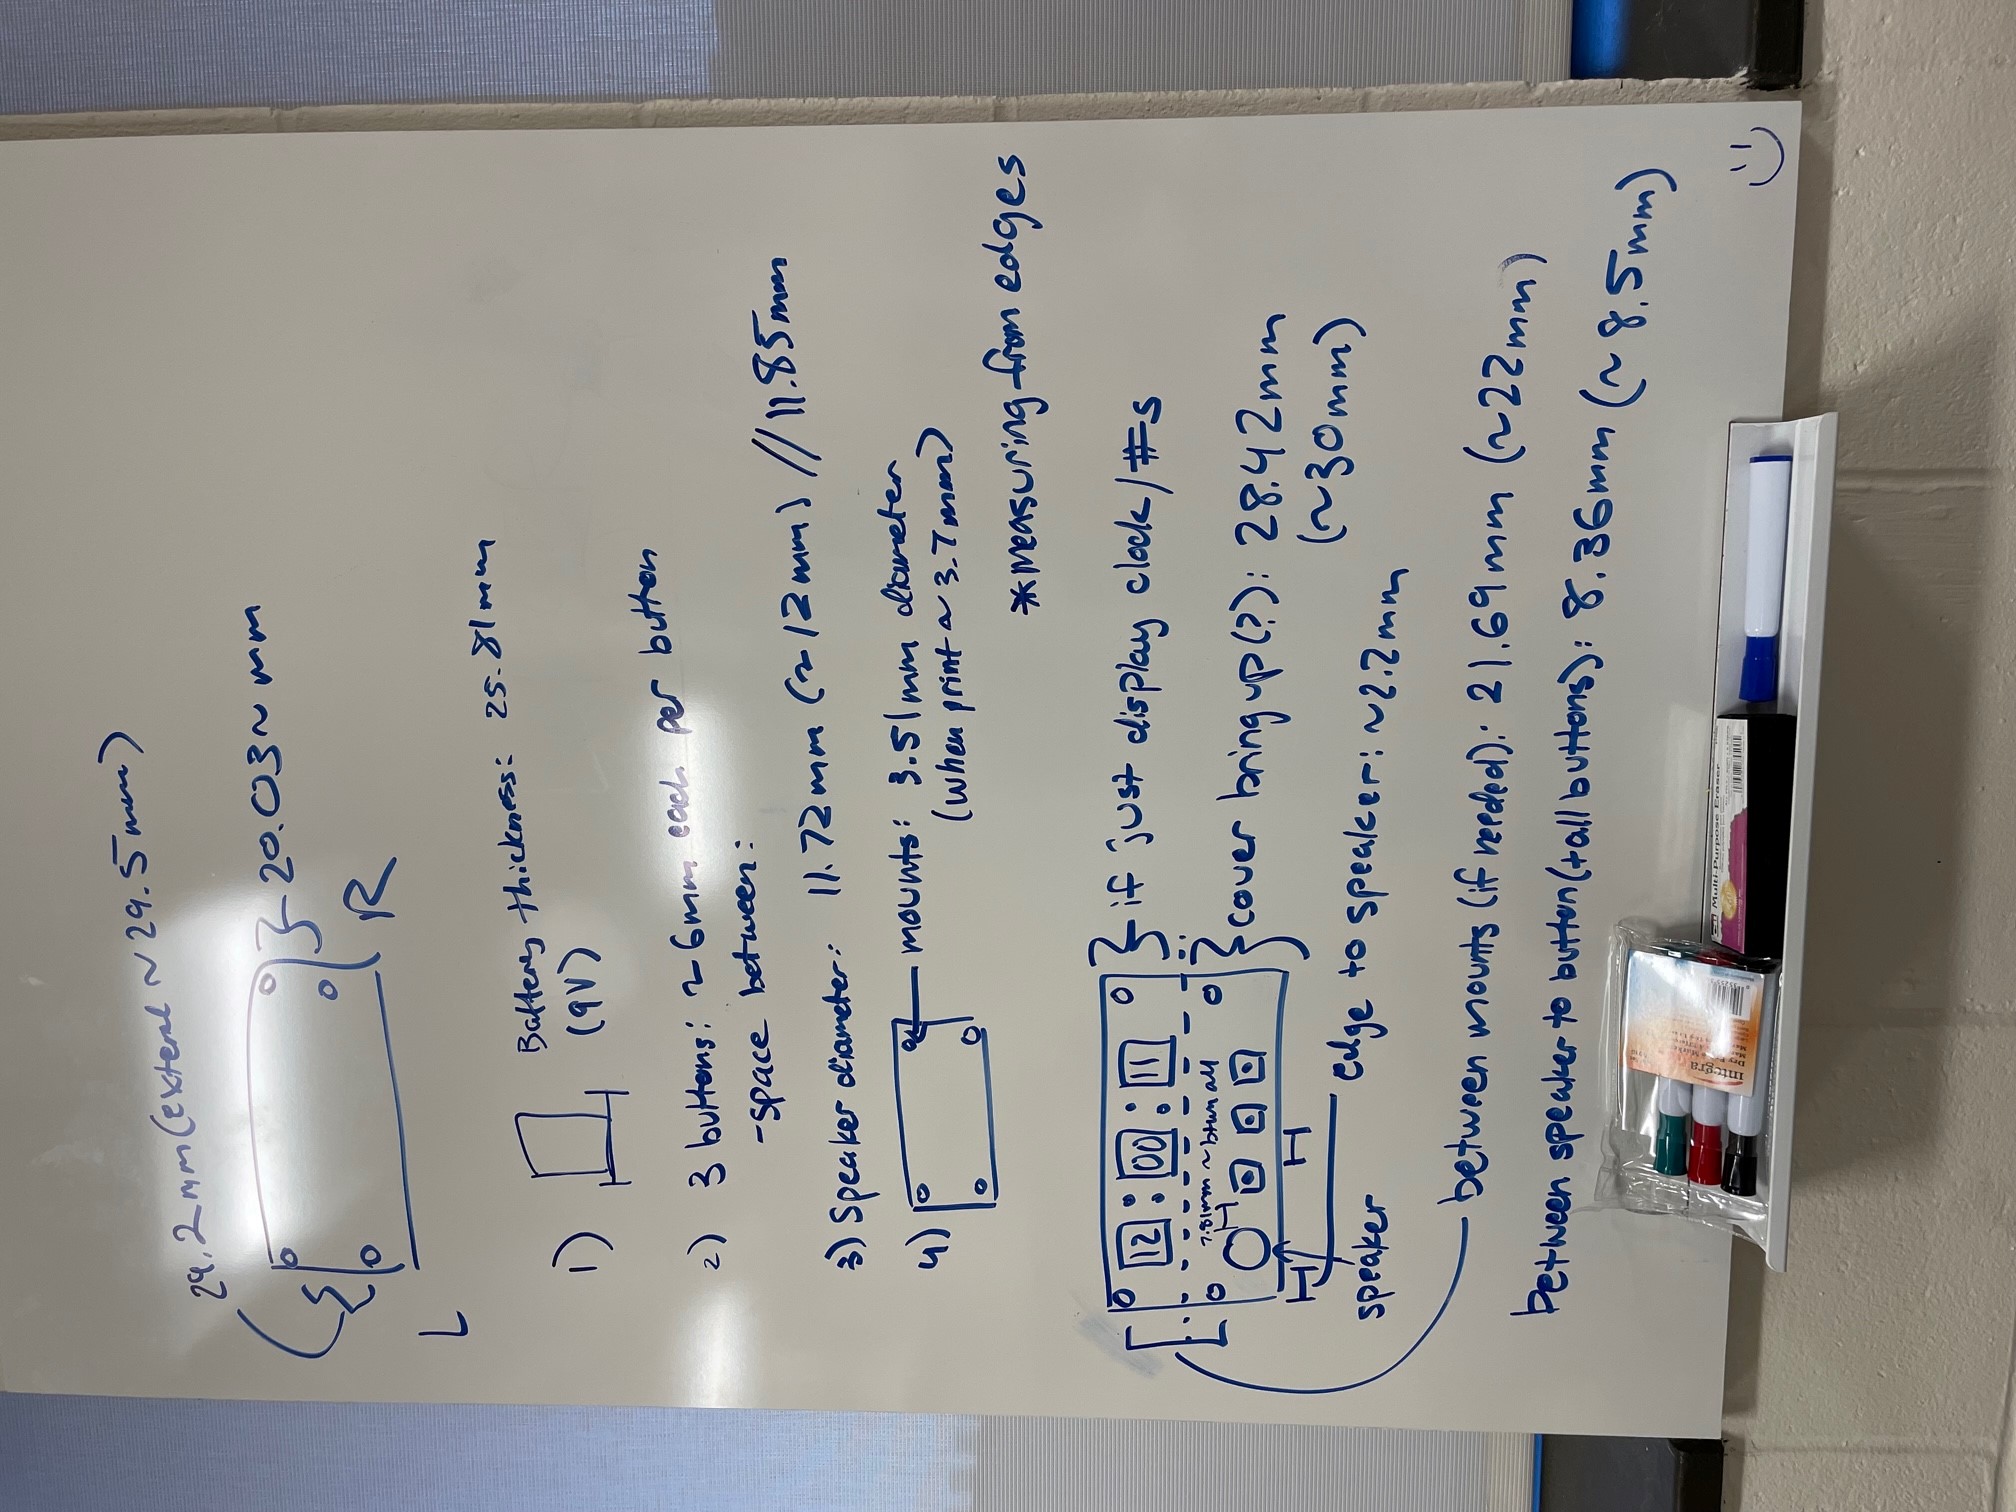 29.2mm (external ~ 29.5mm)
20.03 ~ mm
L
R
1)
Battery thickness: 25.81mm
(9V)
2) 3 buttons: ~ 6mm each per button
- space between:
11.72mm (~ 12mm) // 11.85mm
3) Speaker diameter:
4)
mounts: 3.51mm diameter
(when print ~ 3.7mm)
*measuring from edges
12 : 00 : 11
if just display clock/#s
7.81mm ~ btwn all
cover bring up(?): 28.42mm
(~30mm)
H
H
H
speaker
edge to speaker: ~2.2mm
between mounts (if needed): 21.69mm (~22mm)
between speaker to button (tall buttons): 8.36mm (~ 8.5mm)
integra
Multi-Purpose Eraser